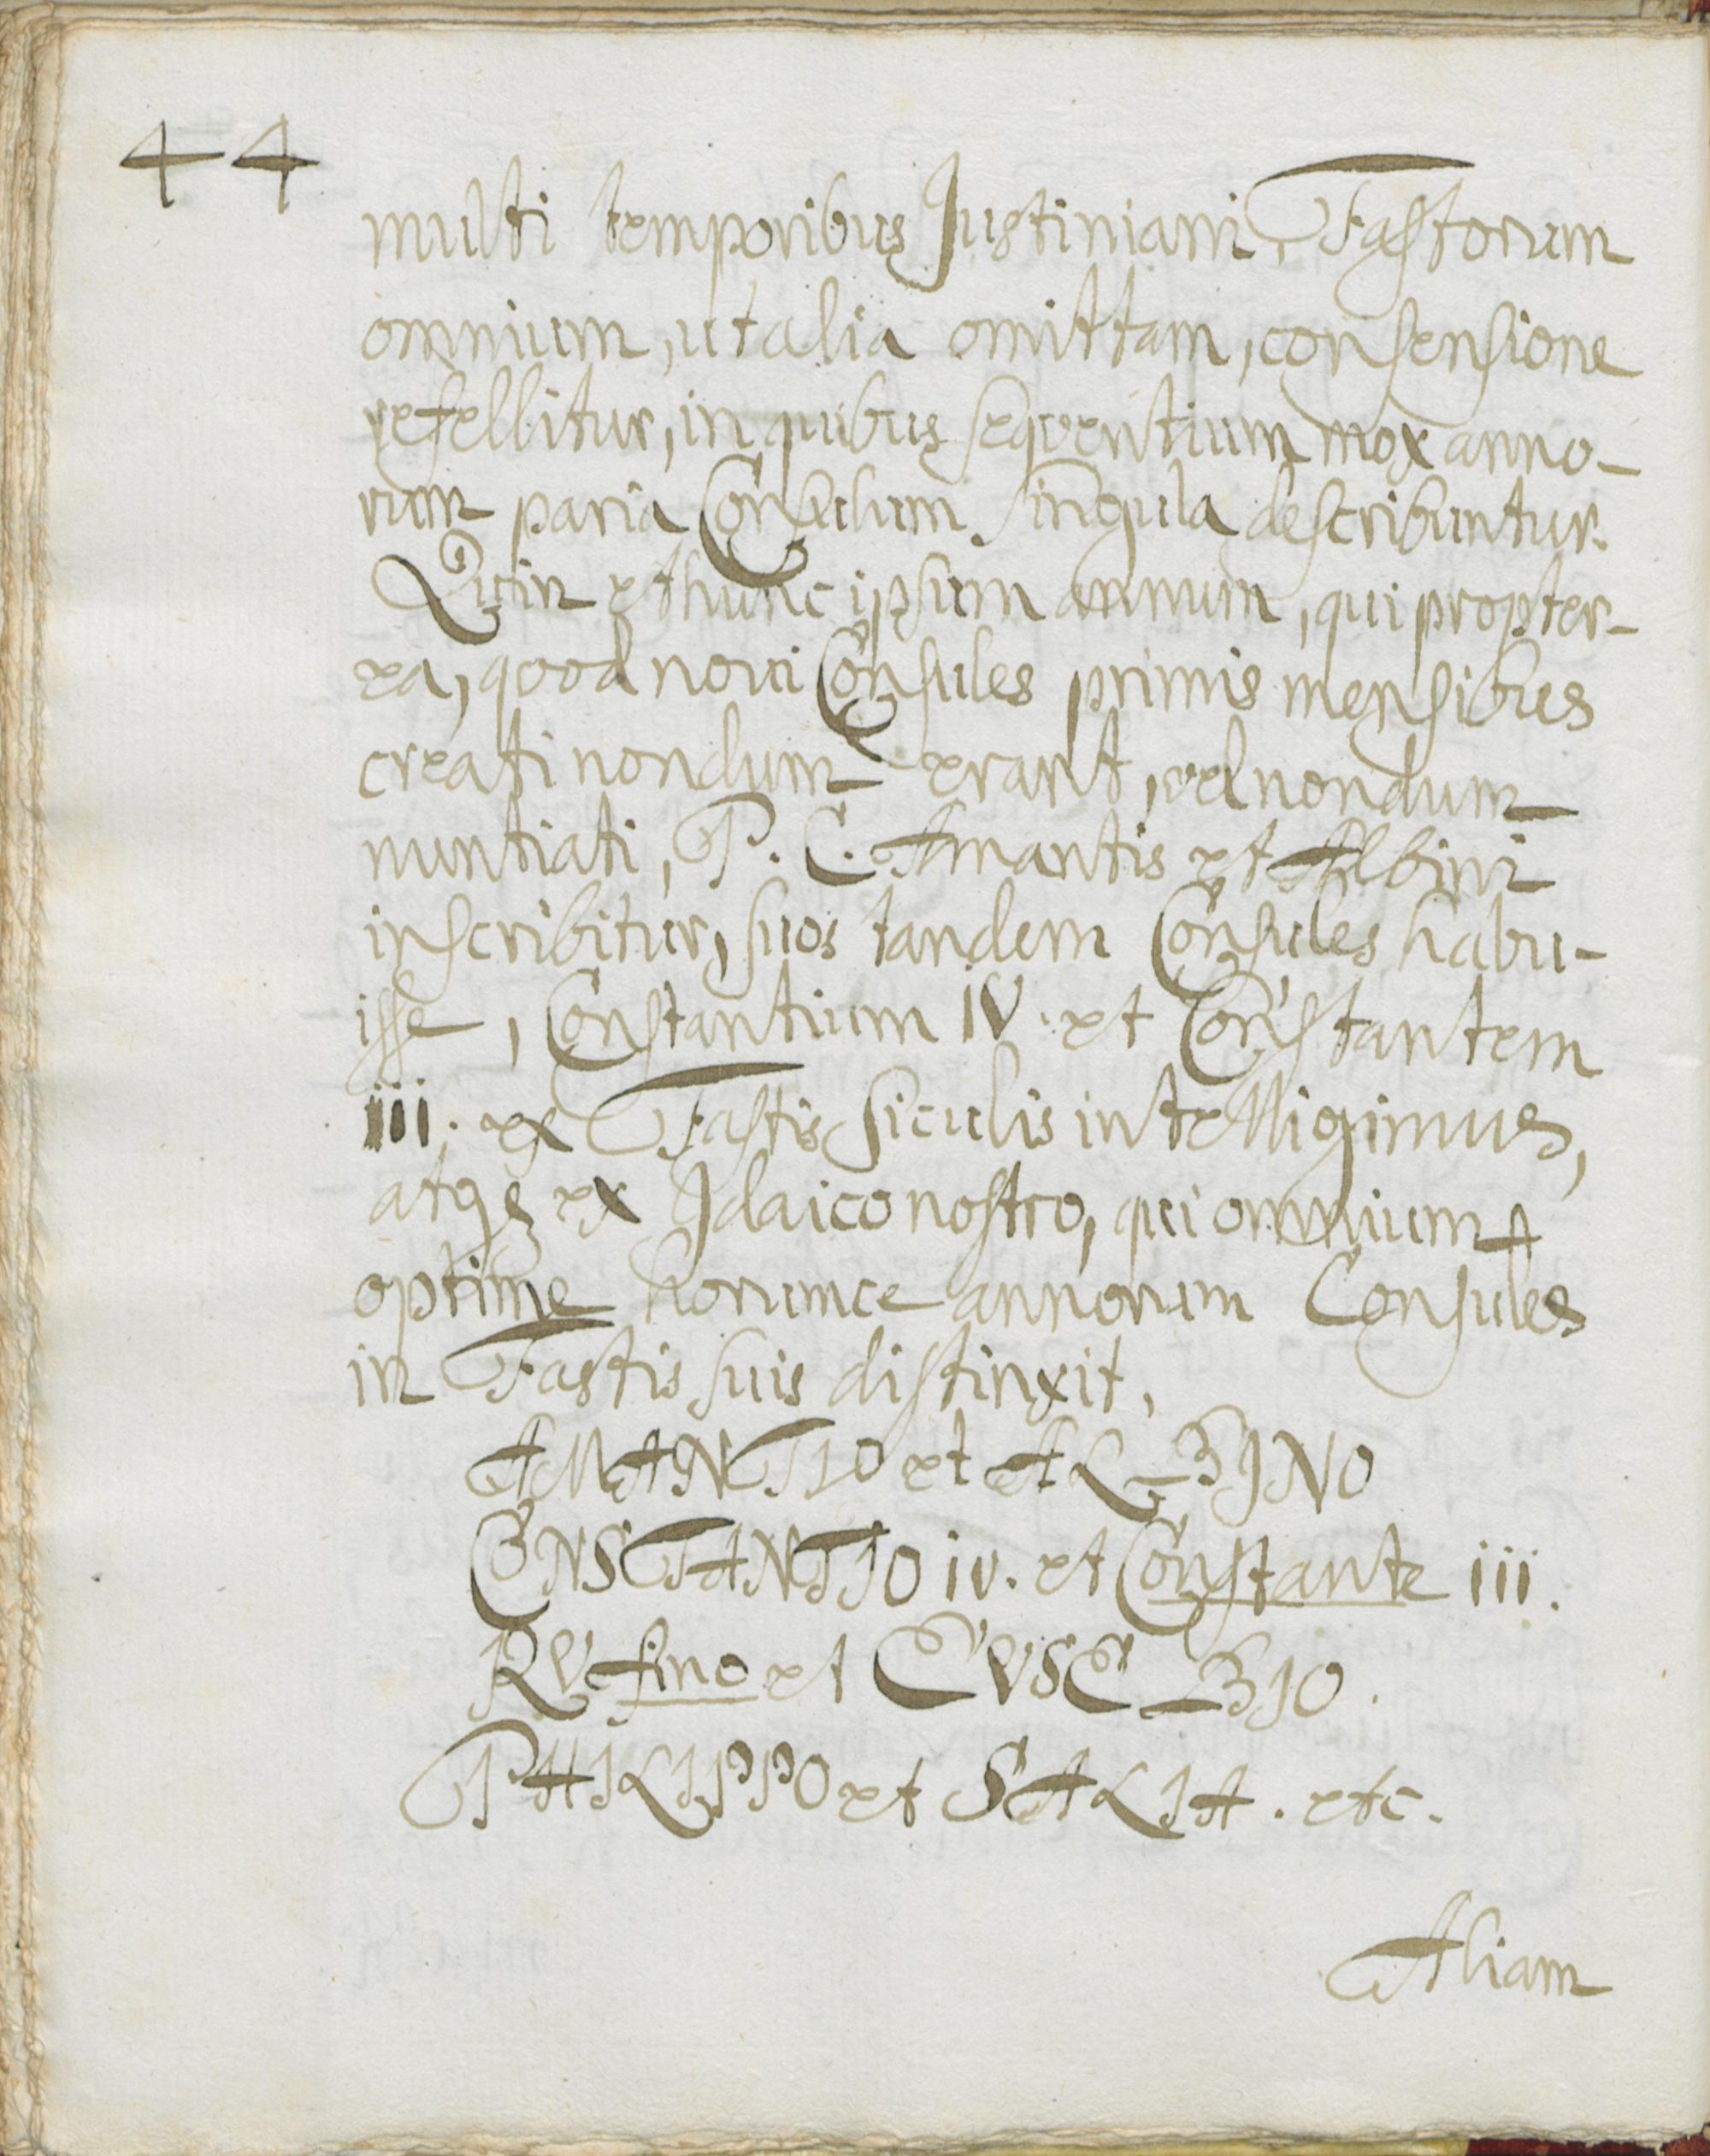 44
multi temporibus Justiniani, Fastorum
omnium, ut alia omittam, consensione
refellitur, in quibus seqventium mox anno-
rum paria Consulum singula describuntur.
Quin et hunc ipsum annum, qui propter-
ea, qvod novi Consules primis mensibus
creati nondum erant, vel nondum
nuntiati, P. C. Amantis et Albini
inscribitur, suos tandem Consules habu-
isse, Constantium IV. et Constantem
iii. ex Fastis Siculis intelligimus,
atqꝫ ex Idaico nostro, qui omnium
optime horumce annorum Consules
in Fastis suis distinxit,
AMANTIO et ALBINO
CONSTANTIO iv. et Constante iii.
RVfino et EVSEBIO.
PHILIPPO et SALIA. etc.
Aliam